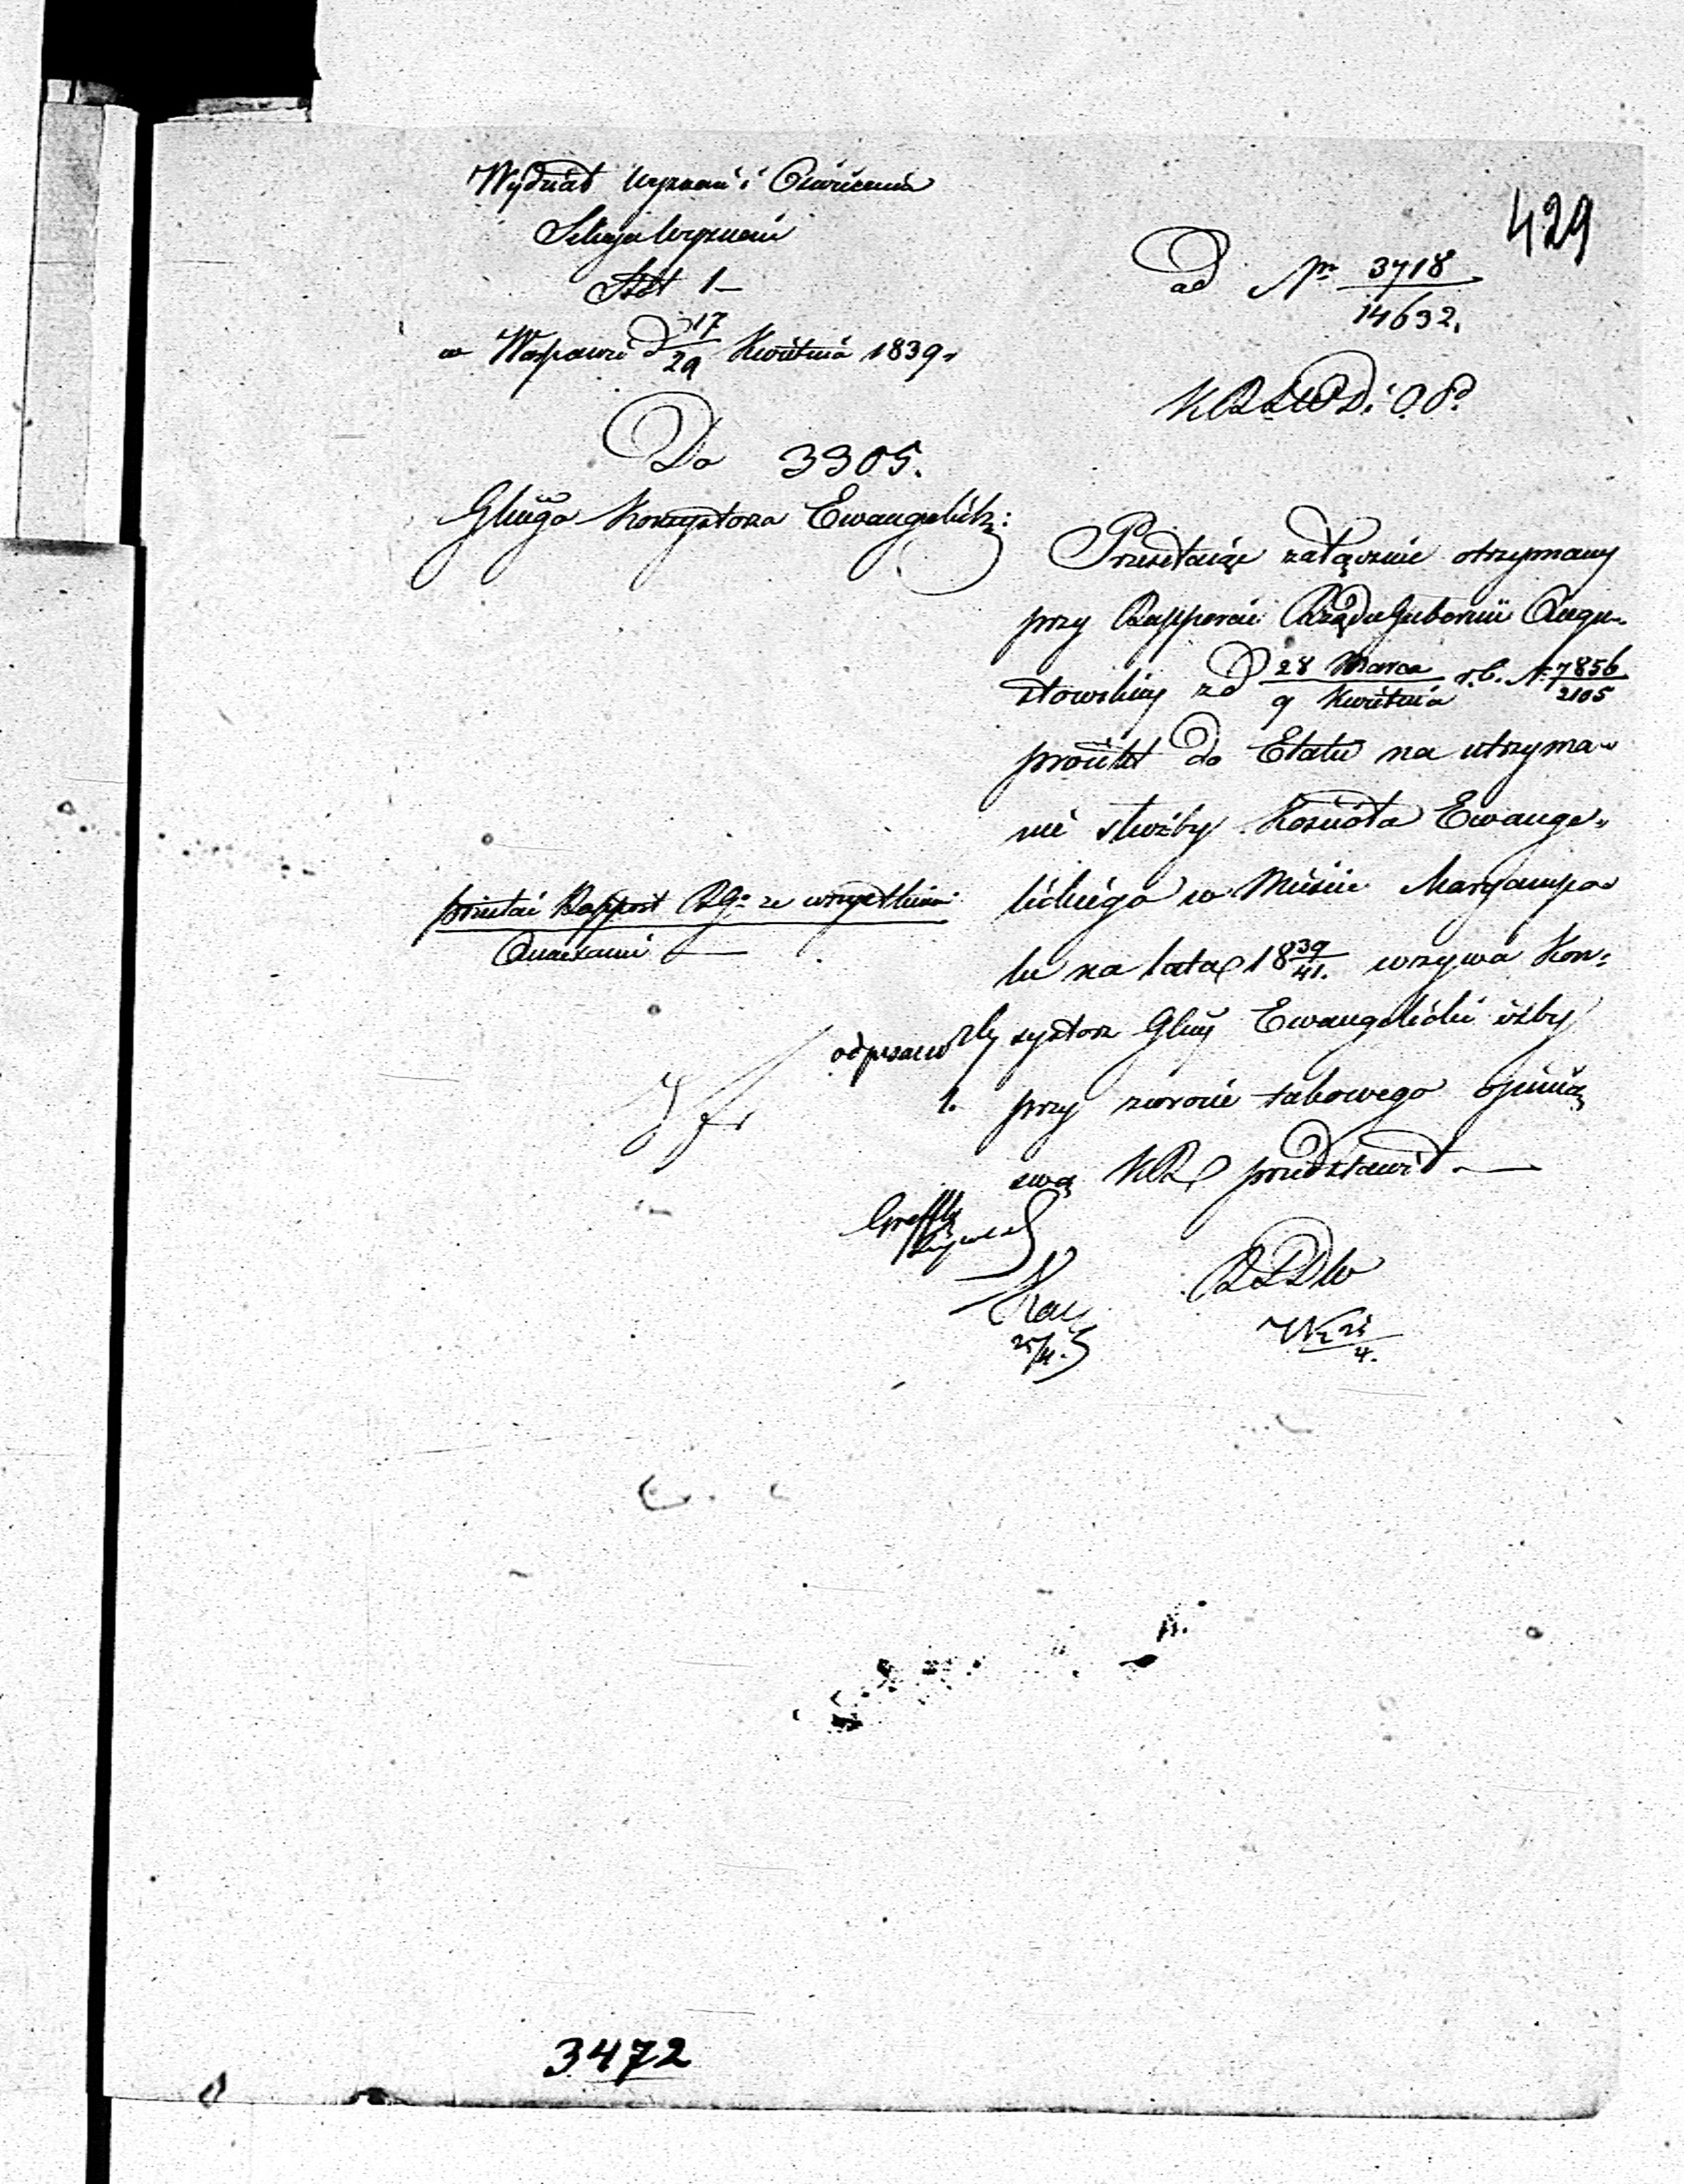 Wydział Wyznań i Oświecenia
Sekcja Wyznań
Stół 1
w Warszawie d 17/29 Kwietnia 1839 r
Do 3305.
Głnego Konsystorza Ewangelick:
429
ad Nr 3718/14632.
K R S W D. i O. P.
Przesyłaiąc załącznie otrzymany
przy Rapporcie Rządu Gubernii Augu-
stowskiey z d 28 Marca/9 Kwietnia r. b. N. 7856/2105
proiekt do Etatu na utrzyma-
nie służby Kościoła Ewange-
lickiego w Mieście Maryampo-
lu na lata 18 39/41. wzywa Kon-
systorz Głny Ewangelicki iżby
przy zwrocie takowego opinią
swą K R przedstawił. —
przesłać Rapport R G. ze wszystkiemi
Anexami
1.
R D D W
25/4.
3472